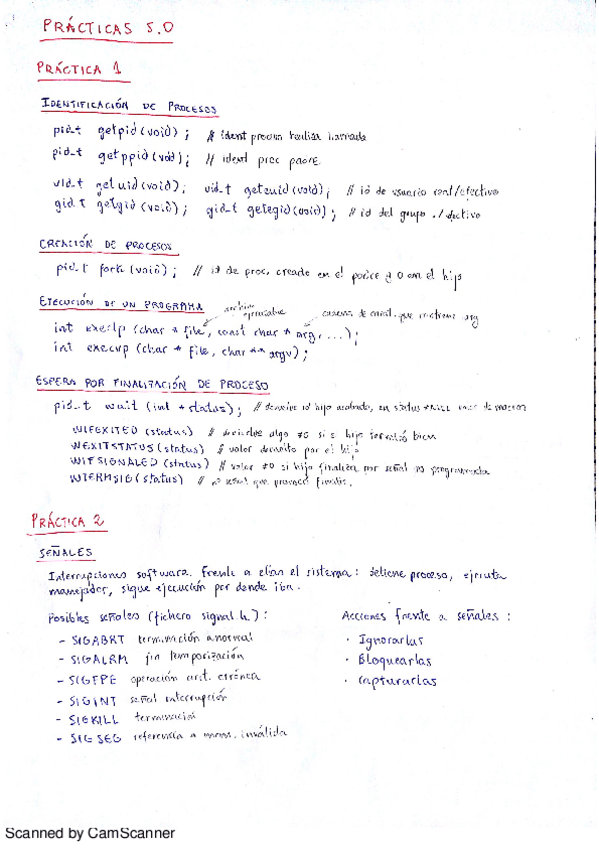 PRÁCTICAS S.O
PRÁCTICA 1
IDENTIFICACIÓN DE PROCESOS
pid_t getpid(void); // ident proceso realiza llamada
pid_t getppid(void); // ident proc padre
uid_t getuid(void); uid_t geteuid(void); // id de usuario real/efectivo
gid_t getgid(void); gid_t getegid(void); // id del grupo ./efectivo
CREACIÓN DE PROCESOS
pid_t fork(void); // id de proc. creado en el padre y 0 en el hijo
EJECUCIÓN DE UN PROGRAMA
archivo ejecutable
cadena de caract. que contiene arg
int execlp (char * file, const char * arg, ...);
int execvp (char * file, char ** argv);
ESPERA POR FINALIZACIÓN DE PROCESO
pid_t wait (int *status); // devuelve id hijo acabado, en status
WIFEXITED (status) // devuelve algo ≠0 si el hijo terminó bien
WEXITSTATUS (status) // valor devuelto por el hijo
WIFSIGNALED (status) // valor ≠0 si hijo finaliza por señal no programada
WTERMSIG (status) // nº señal que provocó finaliz.
PRÁCTICA 2
SEÑALES
Interrupciones software. Frente a ellas el sistema: detiene proceso, ejecuta
manejador, sigue ejecución por donde iba.
Posibles señales (fichero signal.h): Acciones frente a señales:
- SIGABRT terminación anormal · Ignorarlas
- SIGALRM fin temporización · Bloquearlas
- SIGFPE operación arit. errónea · Capturarlas
- SIGINT señal interrupción
- SIGKILL terminación
- SIGSEG referencia a mem. inválida
Scanned by CamScanner